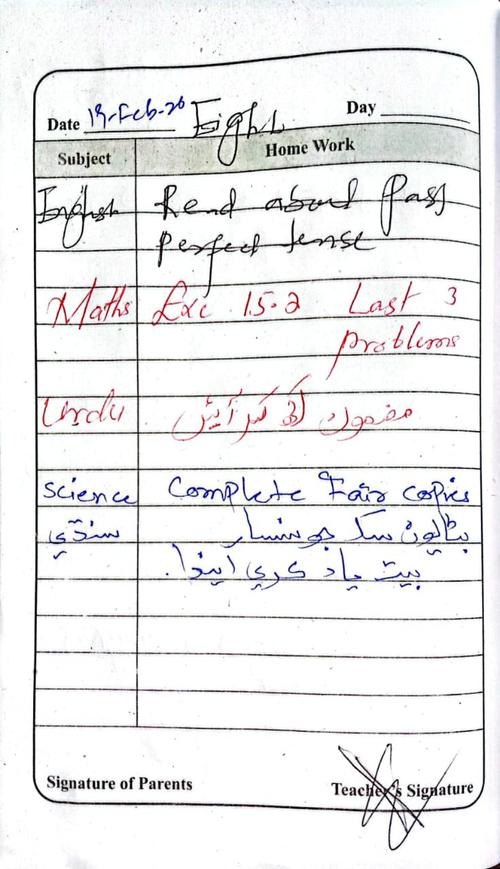 Date 19-Feb-20 Eight Day
Subject Home Work
English Read about Past
Perfect tense
Maths Exc 15.2 Last 3
problems
Urdu مضمون لکھ کر آئیں
Science Complete Fair copies
سنڌي بٽاليون سڪ جو سنسار
بيت ياد ڪري ايندا.
Signature of Parents Teacher's Signature